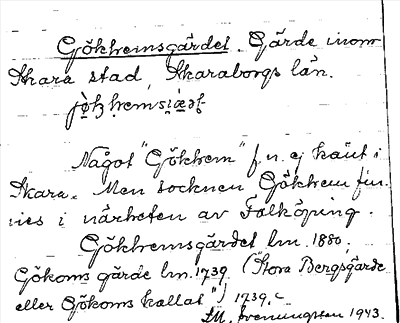 Gökhemsgärdet. Gärde inom
Skara stad, Skaraborgs län.
Något "Gökhem" f.n. ej känt i
Skara. Men socknen Gökhem fin-
nes i närheten av Falköping.
Gökhemsgärdet lm. 1880;
Gökoms gärde lm. 1739 (Stora Bergsgärde
eller Gökoms kallat") 1739, c
1943.